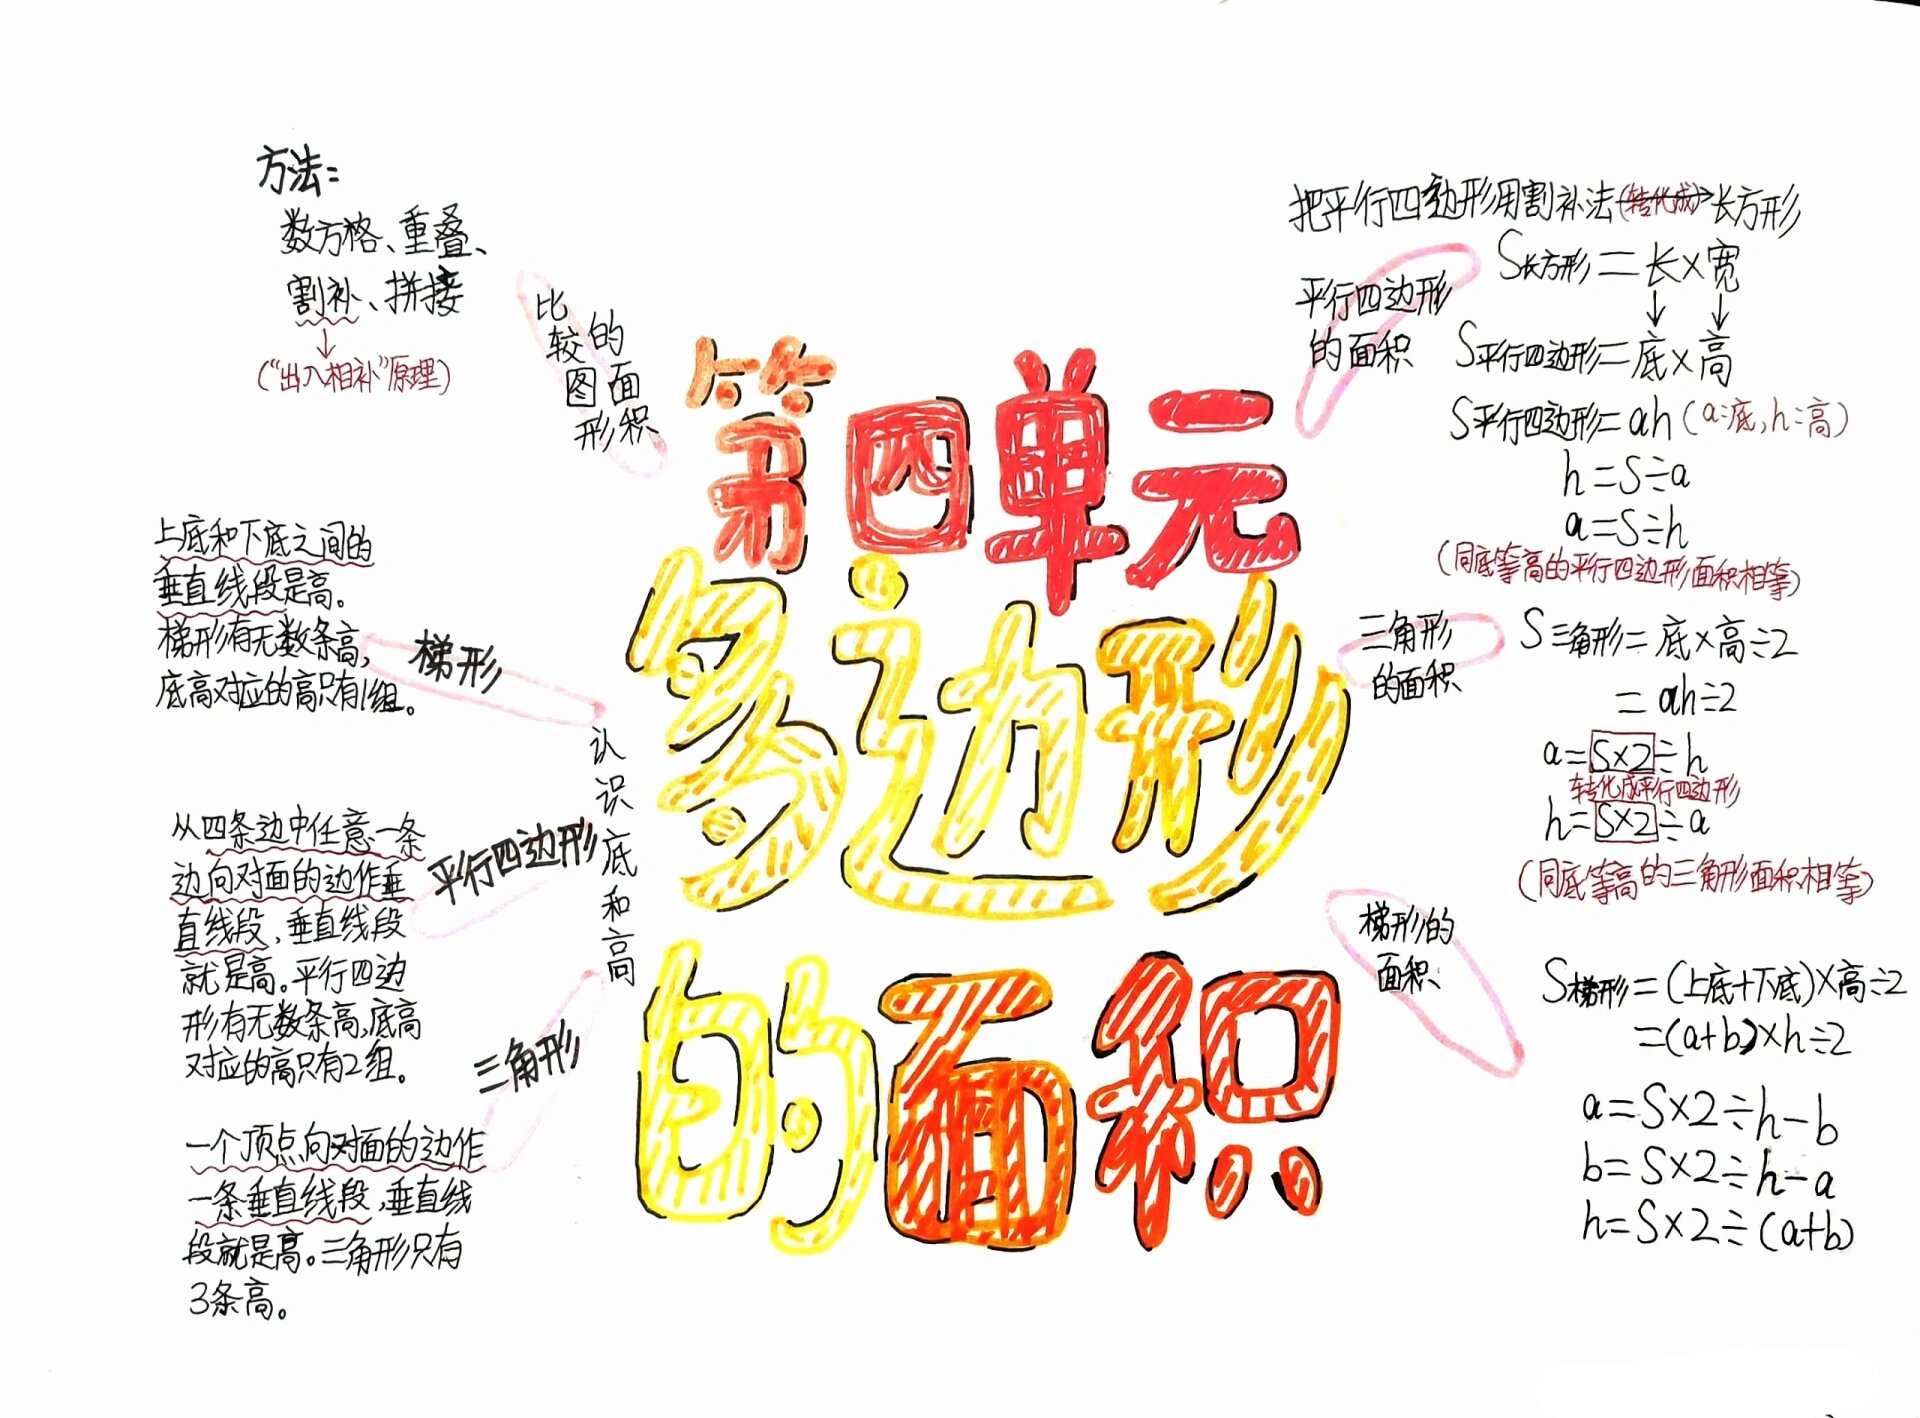 第四单元
多边形
的面积
方法：
数方格、重叠、
割补、拼接
(“出入相补”原理)
比较图形的面积
上底和下底之间的
垂直线段是高。
梯形有无数条高，
底高对应的高只有1组。
梯形
认识底和高
从四条边中任意一条
边向对面的边作垂
直线段，垂直线段
就是高。平行四边
形有无数条高，底高
对应的高只有2组。
平行四边形
三角形
一个顶点向对面的边作
一条垂直线段，垂直线
段就是高。三角形只有
3条高。
把平行四边形用割补法(转化成)→长方形
平行四边形
的面积
S长方形=长×宽
↓ ↓
S平行四边形=底×高
S平行四边形=ah(a:底,h:高)
h=S÷a
a=S÷h
(同底等高的平行四边形面积相等)
三角形
的面积
S三角形=底×高÷2
=ah÷2
a=S×2÷h
转化成平行四边形
h=S×2÷a
(同底等高的三角形面积相等)
梯形的
面积
S梯形=(上底+下底)×高÷2
=(a+b)×h÷2
a=S×2÷h-b
b=S×2÷h-a
h=S×2÷(a+b)